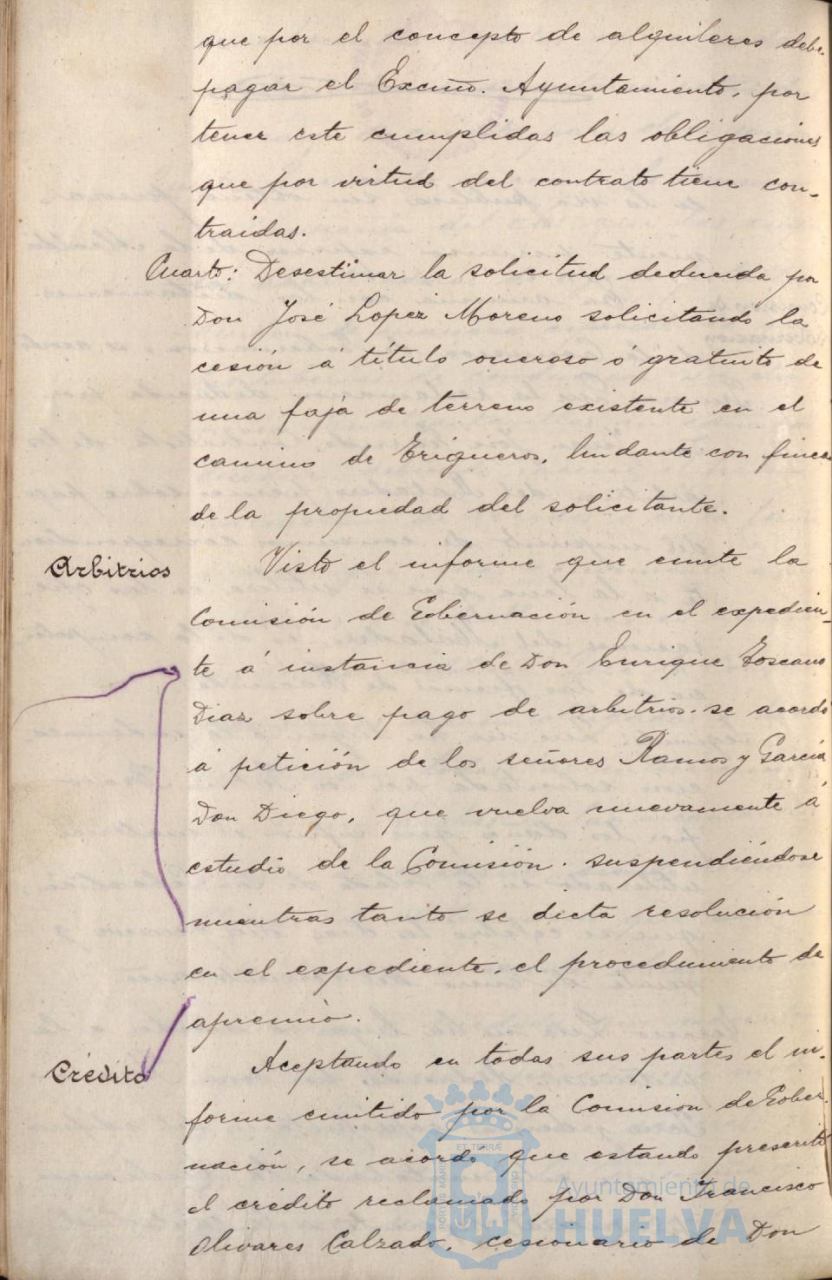 que por el concepto de alquileres debe
pagar el Excmo. Ayuntamiento, por
tener este cumplidas las obligaciones
que por virtud del contrato tiene con-
traidas.
Cuarto: Desestimar la solicitud deducida por
Don José Lopez Moreno solicitando la
cesión á título oneroso ó gratuito de
una faja de terreno existente en el
camino de Trigueros, lindante con fincas
de la propiedad del solicitante.
Arbitrios
Visto el informe que emite la
Comisión de Gobernación en el expedien-
te á instancia de Don Enrique Toscano
Diaz sobre pago de arbitrios. se acordó
á petición de los señores Ramos y García,
Don Diego, que vuelva nuevamente á
estudio de la Comisión. suspendiéndose
mientras tanto se dicta resolución
en el expediente, el procedimiento de
apremio.
Crédito
Aceptando en todas sus partes el in-
forme emitido por la Comision de Gober-
nación, se acordo que estando prescrito
el crédito reclamado por Don Francisco
Olivares Calzado, cesionario de Don
Ayuntamiento de
HUELVA